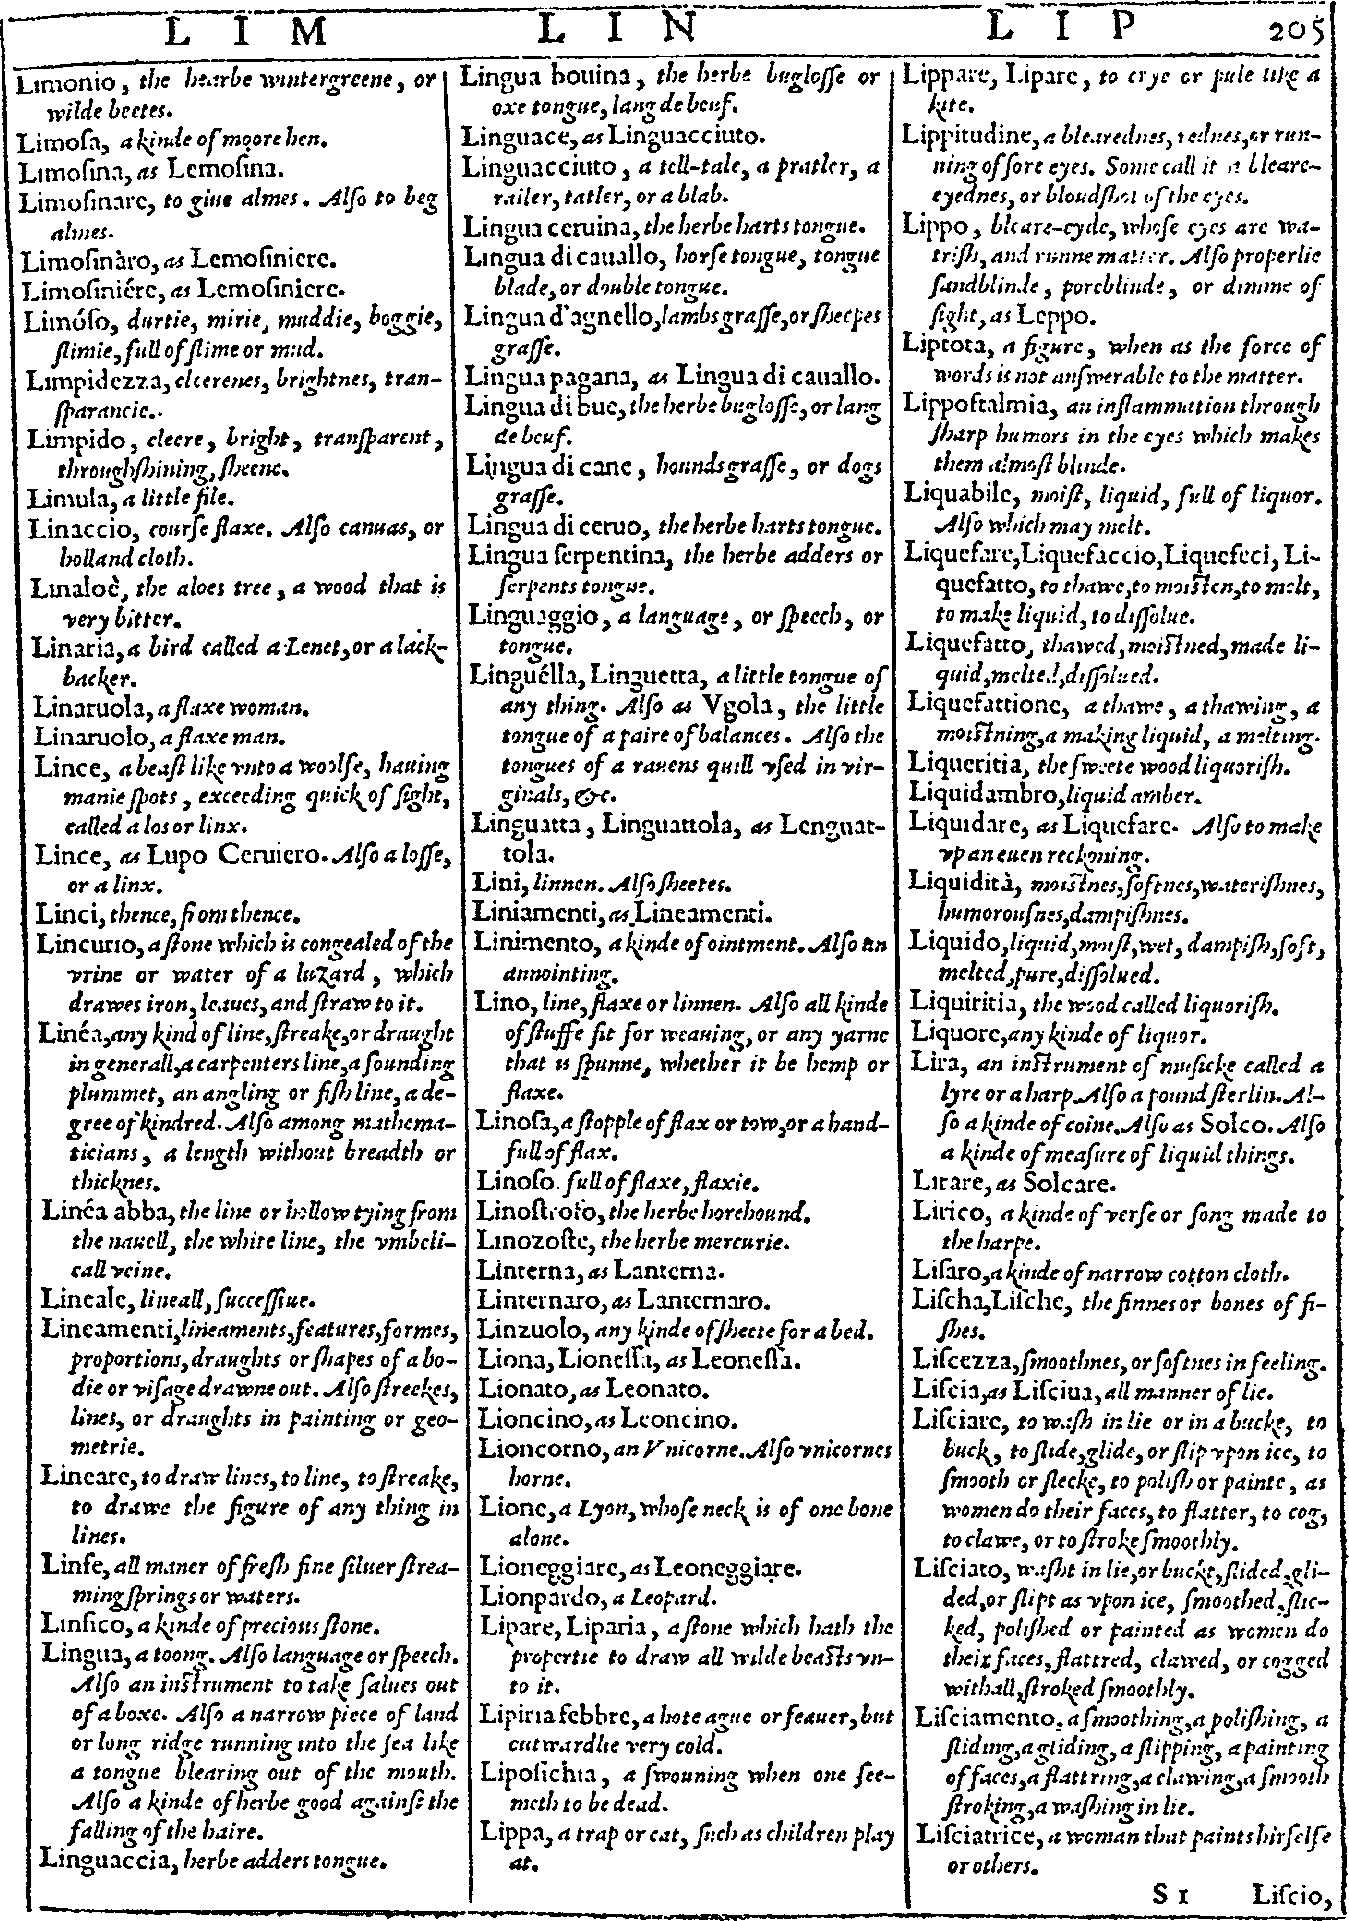 LIM LIN LIP 205
Limonio, the hearbe wintergreene, or
wilde beetes.
Limoſa, a kinde of moore hen.
Limoſina, as Lemoſina.
Limoſinare, to giue almes. Alſo to beg
almes.
Limoſinàro, as Lemoſiniere.
Limoſiniére, as Lemoſiniere.
Limóſo, durtie, mirie, muddie, boggie,
ſlimie, full of ſlime or mud.
Limpidezza, cleerenes, brightnes, tran-
ſparancie.
Limpido, cleere, bright, tranſparent,
throughſhining, ſheene.
Limula, a little file.
Linaccio, courſe flaxe. Alſo canuas, or
holland cloth.
Linaloè, the aloes tree, a wood that is
very bitter.
Linaria, a bird called a Lenet, or a lack-
backer.
Linaruola, a flaxe woman.
Linaruolo, a flaxe man.
Lince, a beaſt like vnto a woolfe, hauing
manie ſpots, exceeding quick of ſight,
called a los or linx.
Lince, as Lupo Ceruiero. Alſo a loſſe,
or a linx.
Linci, thence, from thence.
Lincurio, a ſtone which is congealed of the
vrine or water of a luzard, which
drawes iron, leaues, and ſtraw to it.
Linéa, any kind of line, ſtreake, or draught
in generall, a carpenters line, a ſounding
plummet, an angling or fiſh line, a de-
gree of kindred. Alſo among mathema-
ticians, a length without breadth or
thicknes.
Linéa abba, the line or hollow tying from
the nauell, the white line, the vmbeli-
call veine.
Lineale, lineall, ſucceſſiue.
Lineamenti, lineaments, features, formes,
proportions, draughts or ſhapes of a bo-
die or viſage drawne out. Alſo ſtreekes,
lines, or draughts in painting or geo-
metrie.
Lineare, to draw lines, to line, to ſtreake,
to drawe the figure of any thing in
lines.
Linfe, all maner of freſh fine ſiluer ſtrea-
ming ſprings or waters.
Linfico, a kinde of precious ſtone.
Lingua, a toong. Alſo language or ſpeech.
Alſo an inſtrument to take ſalues out
of a boxe. Alſo a narrow piece of land
or long ridge running into the ſea like
a tongue blearing out of the mouth.
Alſo a kinde of herbe good againſt the
falling of the haire.
Linguaccia, herbe adders tongue.
Lingua bouina, the herbe bugloſſe or
oxe tongue, lang de beuf.
Linguace, as Linguacciuto.
Linguacciuto, a tell-tale, a pratler, a
railer, tatler, or a blab.
Lingua ceruina, the herbe harts tongue.
Lingua di cauallo, horſe tongue, tongue
blade, or double tongue.
Lingua d'agnello, lambs graſſe, or ſheepes
graſſe.
Lingua pagana, as Lingua di cauallo.
Lingua di bue, the herbe bugloſſe, or lang
de beuf.
Lingua di cane, hounds graſſe, or dogs
graſſe.
Lingua di ceruo, the herbe harts tongue.
Lingua ſerpentina, the herbe adders or
ſerpents tongue.
Linguaggio, a language, or ſpeech, or
tongue.
Linguélla, Linguetta, a little tongue of
any thing. Alſo as Vgola, the little
tongue of a paire of balances. Alſo the
tongues of a rauens quill vſed in vir-
ginals, &c.
Linguatta, Linguattola, as Lenguat-
tola.
Lini, linnen. Alſo ſheetes.
Liniamenti, as Lineamenti.
Linimento, a kinde of ointment. Alſo an
annointing.
Lino, line, flaxe or linnen. Alſo all kinde
of ſtuffe fit for weauing, or any yarne
that is ſpunne, whether it be hemp or
flaxe.
Linoſa, a ſtopple of flax or tow, or a hand-
full of flax.
Linoſo. full of flaxe, flaxie.
Linoſtroſo, the herbe horehound.
Linozoſte, the herbe mercurie.
Linterna, as Lanterna.
Linternaro, as Lanternaro.
Linzuolo, any kinde of ſheete for a bed.
Liona, Lioneſſa, as Leoneſſa.
Lionato, as Leonato.
Lioncino, as Leoncino.
Lioncorno, an Vnicorne. Alſo vnicornes
horne.
Lione, a Lyon, whoſe neck is of one bone
alone.
Lioneggiare, as Leoneggiare.
Lionpardo, a Leopard.
Lipare, Liparia, a ſtone which hath the
propertie to draw all wilde beaſts vn-
to it.
Lipiria febbre, a hote ague or feauer, but
outwardlie very cold.
Lipoſichia, a ſwouning when one ſee-
meth to be dead.
Lippa, a trap or cat, ſuch as children play
at.
Lippare, Lipare, to crye or pule like a
kite.
Lippitudine, a blearednes, rednes, or run-
ning of ſore eyes. Some call it a bleare-
eyednes, or bloudſhot of the eyes.
Lippo, bleare-eyde, whoſe eyes are wa-
triſh, and runne matter. Alſo properlie
ſandblinde, poreblinde, or dimme of
ſight, as Leppo.
Liptota, a figure, when as the force of
words is not anſwerable to the matter.
Lippoftalmia, an inflammation through
ſharp humors in the eyes which makes
them almoſt blinde.
Liquabile, moiſt, liquid, full of liquor.
Alſo which may melt.
Liquefare, Liquefaccio, Liquefeci, Li-
quefatto, to thawe, to moiſten, to melt,
to make liquid, to diſſolue.
Liquefatto, thawed, moiſtned, made li-
quid, melted, diſſolued.
Liquefattione, a thawe, a thawing, a
moiſtning, a making liquid, a melting.
Liqueritia, the ſweete wood liquoriſh.
Liquidambro, liquid amber.
Liquidare, as Liquefare. Alſo to make
vp an euen reckoning.
Liquidità, moiſtnes, ſoftnes, wateriſhnes,
humorouſnes, dampiſhnes.
Liquido, liquid, moiſt, wet, dampiſh, ſoft,
melted, pure, diſſolued.
Liquiritia, the wood called liquoriſh.
Liquore, any kinde of liquor.
Lira, an inſtrument of muſicke called a
lyre or a harp. Alſo a pound ſterlin. Al-
ſo a kinde of coine. Alſo as Solco. Alſo
a kinde of meaſure of liquid things.
Lirare, as Solcare.
Lirico, a kinde of verſe or ſong made to
the harpe.
Liſaro, a kinde of narrow cotton cloth.
Liſcha, Liſche, the finnes or bones of fi-
ſhes.
Liſcezza, ſmoothnes, or ſoftnes in feeling.
Liſcia, as Liſciua, all manner of lie.
Liſciare, to waſh in lie or in a bucke, to
buck, to ſlide, glide, or ſlip vpon ice, to
ſmooth or ſlecke, to poliſh or painte, as
women do their faces, to flatter, to cog,
to clawe, or to ſtroke ſmoothly.
Liſciato, waſht in lie, or buckt, ſlided, gli-
ded, or ſlipt as vpon ice, ſmoothed, ſlic-
ked, poliſhed or painted as women do
their faces, flattred, clawed, or cogged
withall, ſtroked ſmoothly.
Liſciamento, a ſmoothing, a poliſhing, a
ſliding, a gliding, a ſlipping, a painting
of faces, a flattring, a clawing, a ſmooth
ſtroking, a waſhing in lie.
Liſciatrice, a woman that paints hirſelfe
or others.
S 1 Liſcio,